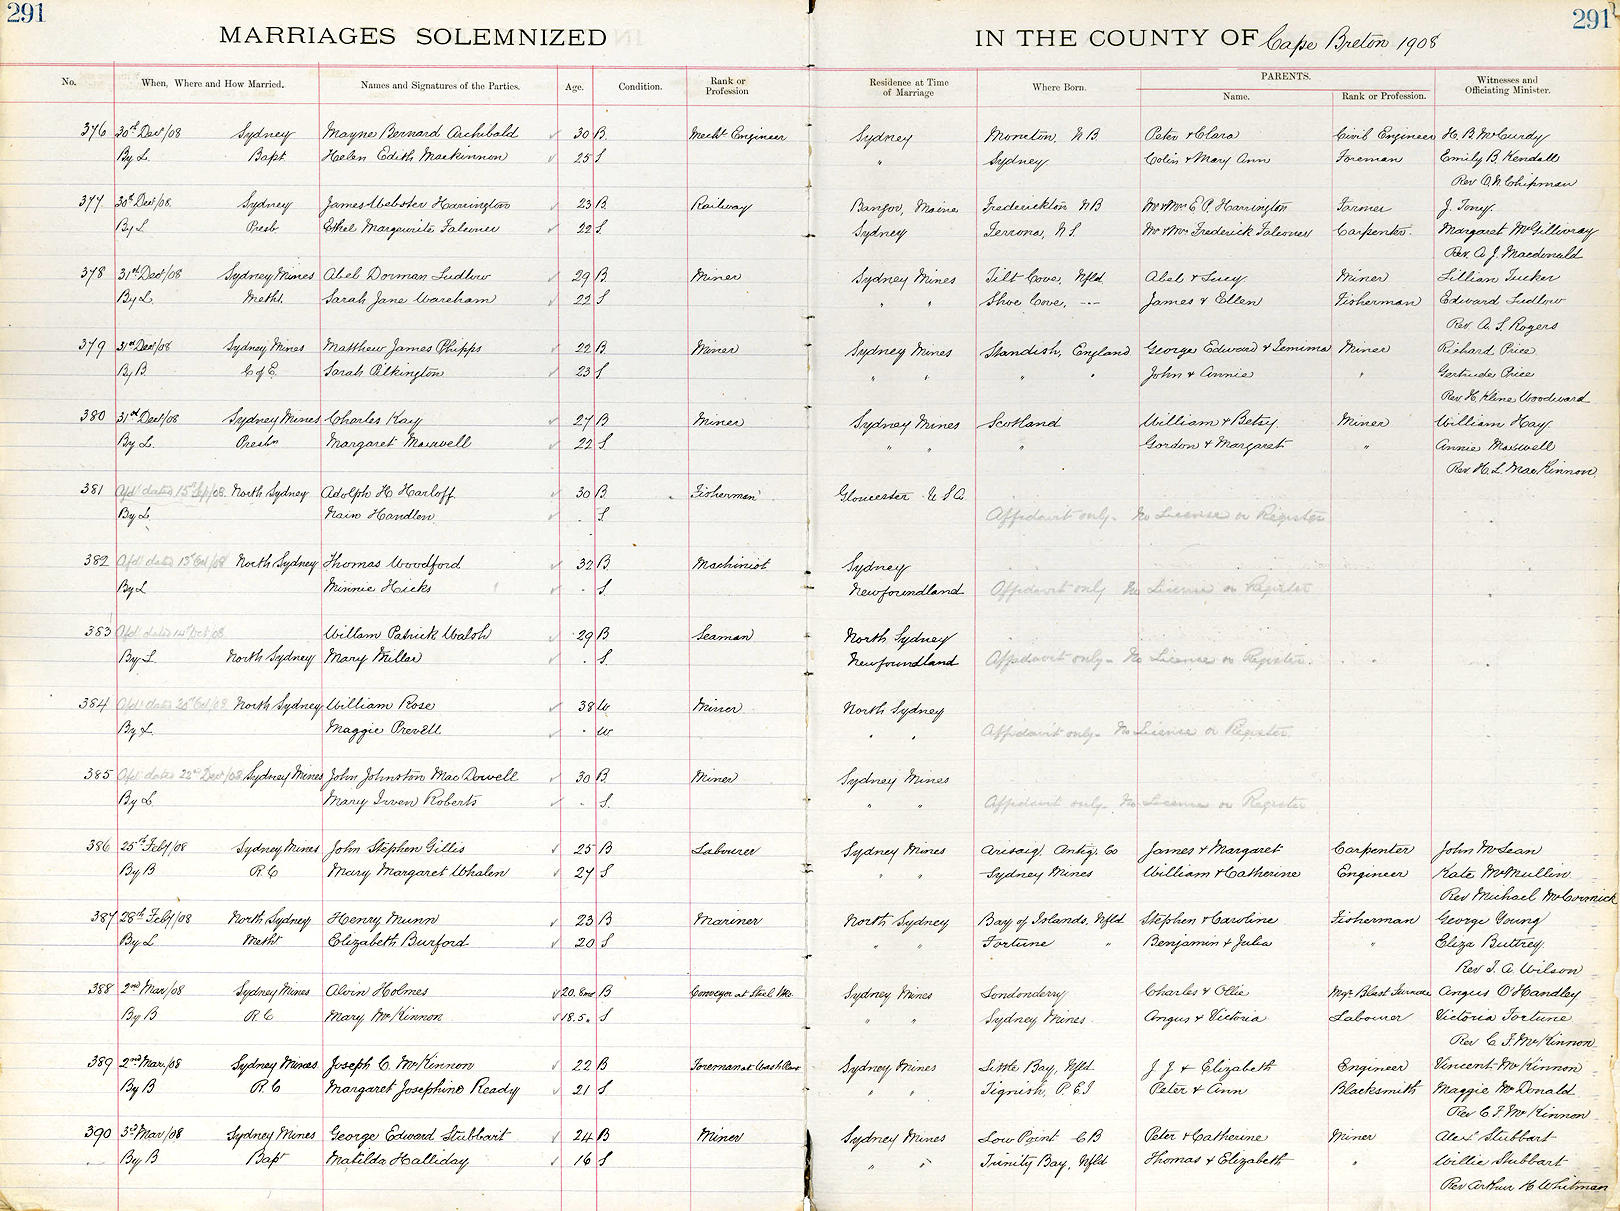 291 291
MARRIAGES SOLEMNIZED IN THE COUNTY OF Cape Breton 1908
No. When, Where and How Married. Names and Signatures of the Parties. Age. Condition. Rank or Profession Residence at Time of Marriage Where Born. PARENTS. Name. Rank or Profession. Witnesses and Officiating Minister.
376 30th Dec/08 Sydney Mayne Bernard Archibald 30 B. Mech! Engineer Sydney Moncton, N.B. Peter & Clara Civil Engineer H. B. McCurdy
By L. Bapt Helen Edith Mackinnon 25 S " Sydney Colin & Mary Ann Foreman Emily B. Kendall
Rev O. N. Chipman
377 30th Dec/08 Sydney James Webster Harrington 23 B. Railway Bangor, Maine Fredericton NB Mr & Mrs E. P. Harrington Farmer J. Toney.
By L Presb Ethel Marguerite Falconer 22 S. Sydney Ferrona, N.S. Mr & Mrs Frederick Falconer Carpenter. Margaret McGillivray
Rev. A. J. Macdonald
378 31st Dec/08 Sydney Mines Abel Dorman Ludlow 29 B. Miner Sydney Mines Tilt Cove, Nfld Abel & Lucy Miner Lillian Tucker
By L. Meths. Sarah Jane Wareham 22 S " " Shoe Cove, -"- James & Ellen Fisherman Edward Ludlow
Rev. A. S. Rogers
379 31st Dec/08 Sydney Mines Matthew James Phipps 22 B. Miner Sydney Mines Standish, England George Edward & Jemima Miner Richard Price
By B. C of E. Sarah Pilkington 23 S " " " " John & Annie " Gertrude Price
Rev. H. Kline Woodward
380 31st Dec/08 Sydney Mines Charles Kay 27 B Miner Sydney Mines Scotland William & Betsy Miner William Hay
By L. Presbn Margaret Maxwell 22 S. " " " Gordon & Margaret " Annie Maxwell
Rev. H. L. MacKinnon
381 Afd! dated 15th Sep/08. North Sydney Adolph H Harloff 30 B Fisherman Gloucester U S A.
By L Nain Handlen . S Affidavit only - No License or Register
382 Afd! dated 13th Oct/08 North Sydney Thomas Woodford 32 B Machinist Sydney
By L Minnie Hicks . S. Newfoundland Affidavit only No License or Register
383 Afd! dated 14th Oct/08 Willam Patrick Walsh 29 B Seaman North Sydney
By L North Sydney Mary Millar . S. Newfoundland Affidavit only - No License or Register.
384 Afd! dated 20th Oct/08 North Sydney William Rose 38 W Miner North Sydney
By L. Maggie Prevell . W " " Affidavit only - No License or Register.
385 Afd! dated 22nd Dec/08 Sydney Mines John Johnston MacDowell 30 B. Miner Sydney Mines
By L Mary Irven Roberts . S. " " Affidavit only - No License or Register
386 25th Feby/08 Sydney Mines John Stephen Gillis 25 B Labourer Sydney Mines Arisaig, Antig. Co James & Margaret Carpenter John McLean
By B R. C Mary Margaret Whalen 27 S " " Sydney Mines William & Catherine Engineer Kate McMullin
Rev Michael McCormick
387 28th Feby/08 North Sydney Henry Munn 23 B Mariner North Sydney Bay of Islands, Nfld Stephen & Caroline Fisherman George Young
By L Metht Elizabeth Burford 20 S " " Fortune " Benjamin & Julia " Eliza Buttrey.
Rev. J. A. Wilson
388 2nd Mar/08 Sydney Mines Alvin Holmes 20.8mo B Conveyor at Steel Wks. Sydney Mines Londonderry Charles & Ollie Mgr. Blast Furnace Angus O'Handley
By B R. C Mary McKinnon 18.5. S " " Sydney Mines Angus & Victoria Labourer Victoria Fortune
Rev C. F. McKinnon
389 2nd Mar/08 Sydney Mines. Joseph C. McKinnon 22 B Foreman at Wash Plant Sydney Mines Little Bay, Nfld J. J & Elizabeth Engineer Vincent McKinnon
By B R. C Margaret Josephine Ready 21 S " " Tignish, P.E.I Peter & Ann Blacksmith Maggie McDonald
Rev C. F. McKinnon
390 3rd Mar/08 Sydney Mines George Edward Stubbart 24 B Miner Sydney Mines Low Point C.B Peter & Catherine Miner Alex! Stubbart
By B Bapt Matilda Halliday 16 S " " Trinity Bay, Nfld Thomas & Elizabeth " Willie Stubbart
Rev Arthur H Whitman